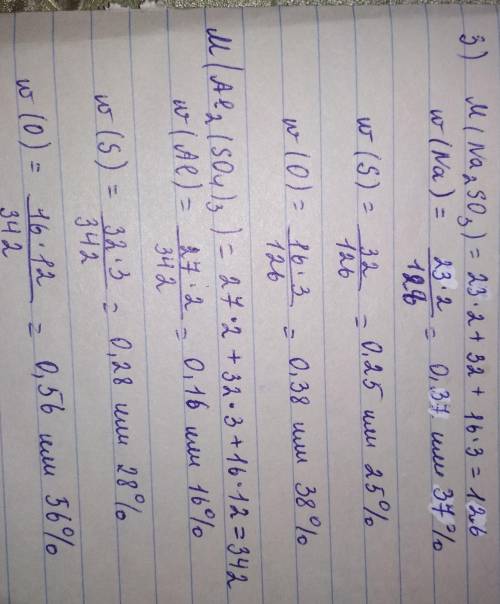 3) M(Na₂SO₃) = 23·2 + 32 + 16·3 = 126
w(Na) = 23·2/126 = 0,37 или 37%
w(S) = 32/126 = 0,25 или 25%
w(O) = 16·3/126 = 0,38 или 38%
M(Al₂(SO₄)₃) = 27·2 + 32·3 + 16·12 = 342
w(Al) = 27·2/342 = 0,16 или 16%
w(S) = 32·3/342 = 0,28 или 28%
w(O) = 16·12/342 = 0,56 или 56%